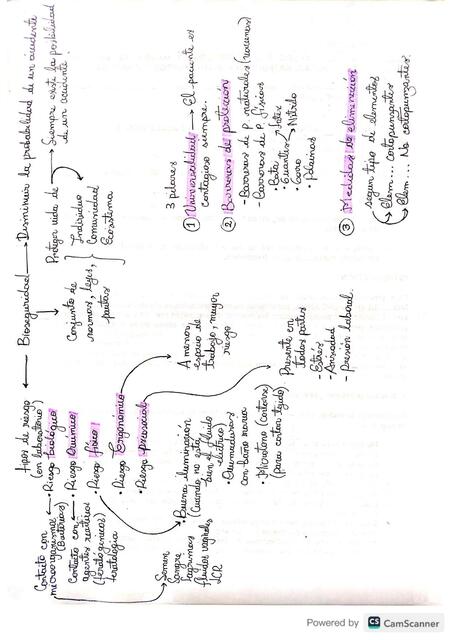 Bioseguridad → Disminuir la probabilidad de un accidente
Siempre existe la posibilidad
de un accidente
Proteger vida de
Individuo
Comunidad
Ecosistema
Conjunto de
normas, leyes,
pautas
3 pilares
① Universalidad → El paciente es
contagioso siempre.
② Barreras de protección
- Barreras de P. naturales
- Barreras de P. físicas
• Bata
• Guantes
Látex
Nitrilo
• Gorro
③ Medidas de eliminación
según tipo de elementos
Elem... cortopunzantes
Elem... No cortopunzantes.
tipos de riesgo
(en laboratorio)
• Riesgo biológico
• Riesgo Químico
• Riesgo físico
• Riesgo Ergonómico
• Riesgo
Contacto con
microorganismos
(Bacterias)
Contacto con
agentes reactivos
teratología
Semen
Sangre
Lágrimas
fluidos vaginales
LCR
• Buena iluminación
(Cuando no esta
bien el fluido
eléctrico)
• Quemaduras
con baño maria
• Microtomo (Cortarse)
(Para cortar tejido)
A menor
espacio de
trabajo, mayor
riesgo
Presente en
todas partes
- Estrés
- Ansiedad
- Presión laboral.
Powered by CS CamScanner